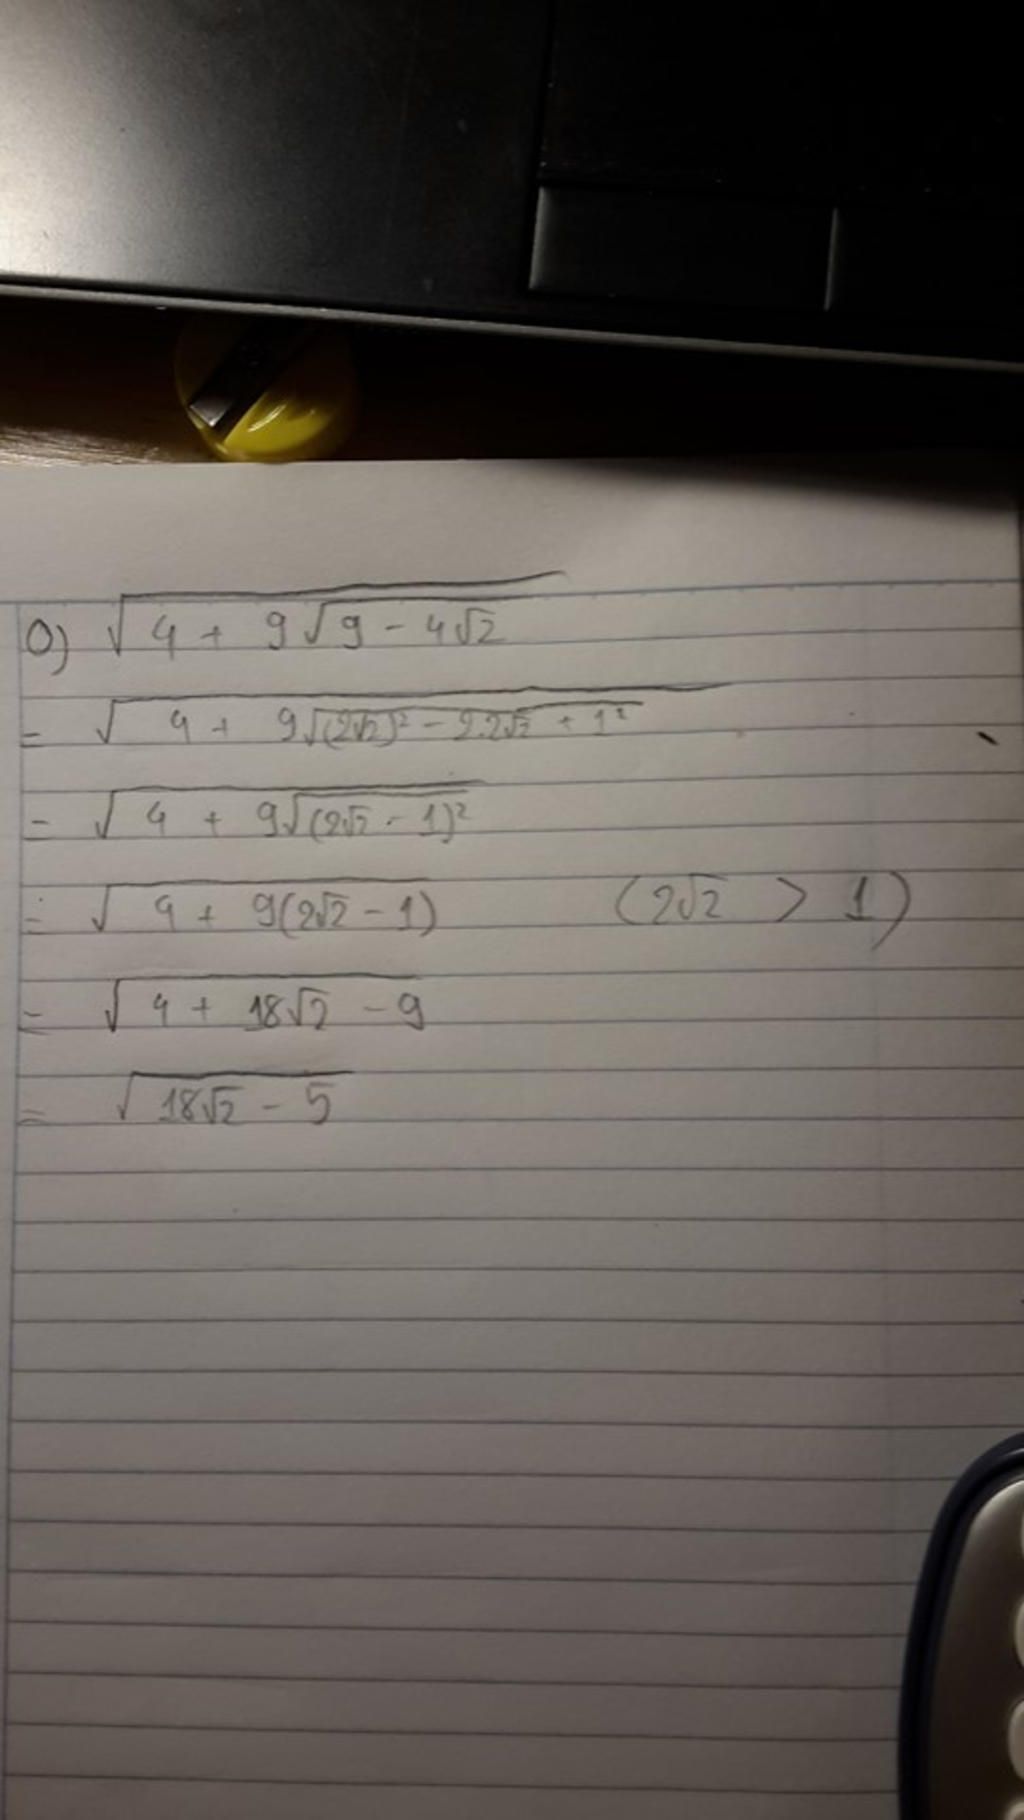 O) √(4 + 9√(9 - 4√2))
= √(4 + 9√((2√2)² - 2.2√2 + 1²))
= √(4 + 9√((2√2 - 1)²))
= √(4 + 9(2√2 - 1)) (2√2 > 1)
= √(4 + 18√2 - 9)
= √(18√2 - 5)